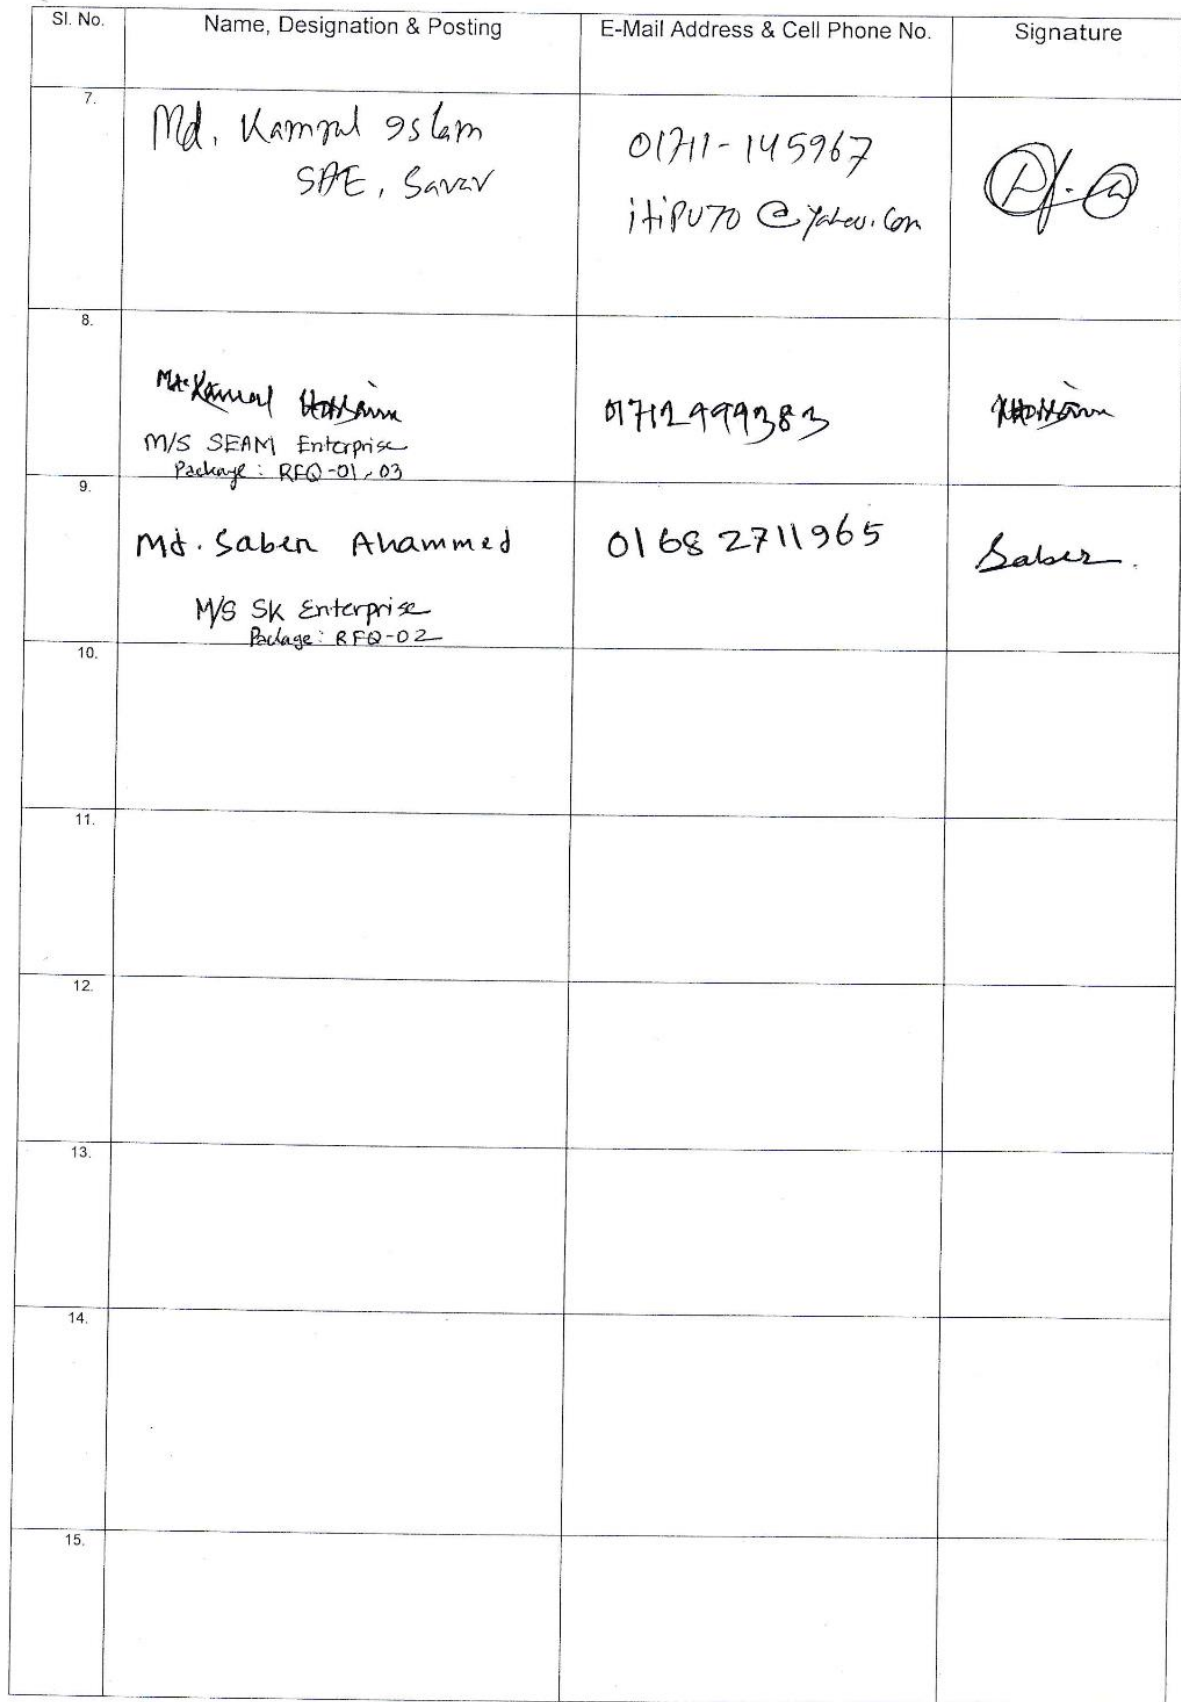 Sl. No. Name, Designation & Posting E-Mail Address & Cell Phone No. Signature
7.
Md. Kamrul Islam
SAE, Savar
01711-145967
itipu70@yahoo.com
8.
Md. Kamal Hossain
M/S SEAM Enterprise
Package: RFQ-01, 03
KHossain
9.
Md. Saber Ahammed
M/S SK Enterprise
Package: RFQ-02
01682711965
Saber.
10.
11.
12.
13.
14.
15.